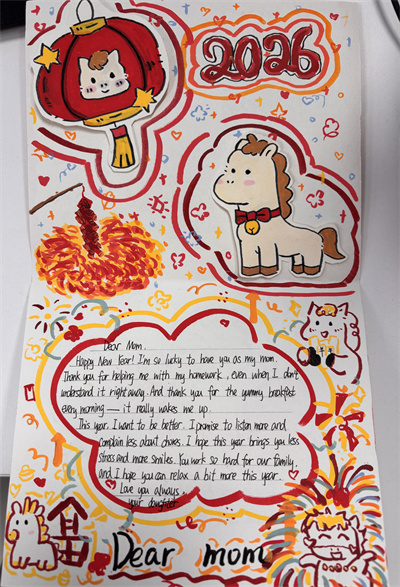 2026
Dear Mom,
Happy New Year! I'm so lucky to have you as my mom.
Thank you for helping me with my homework, even when I don't
understand it right away. And thank you for the yummy breakfast
every morning — it really wakes me up.
This year, I want to be better. I promise to listen more and
complain less about chores. I hope this year brings you less
stress and more smiles. You work so hard for our family,
and I hope you can relax a bit more this year.
Love you always,
Your daughter
Dear mom